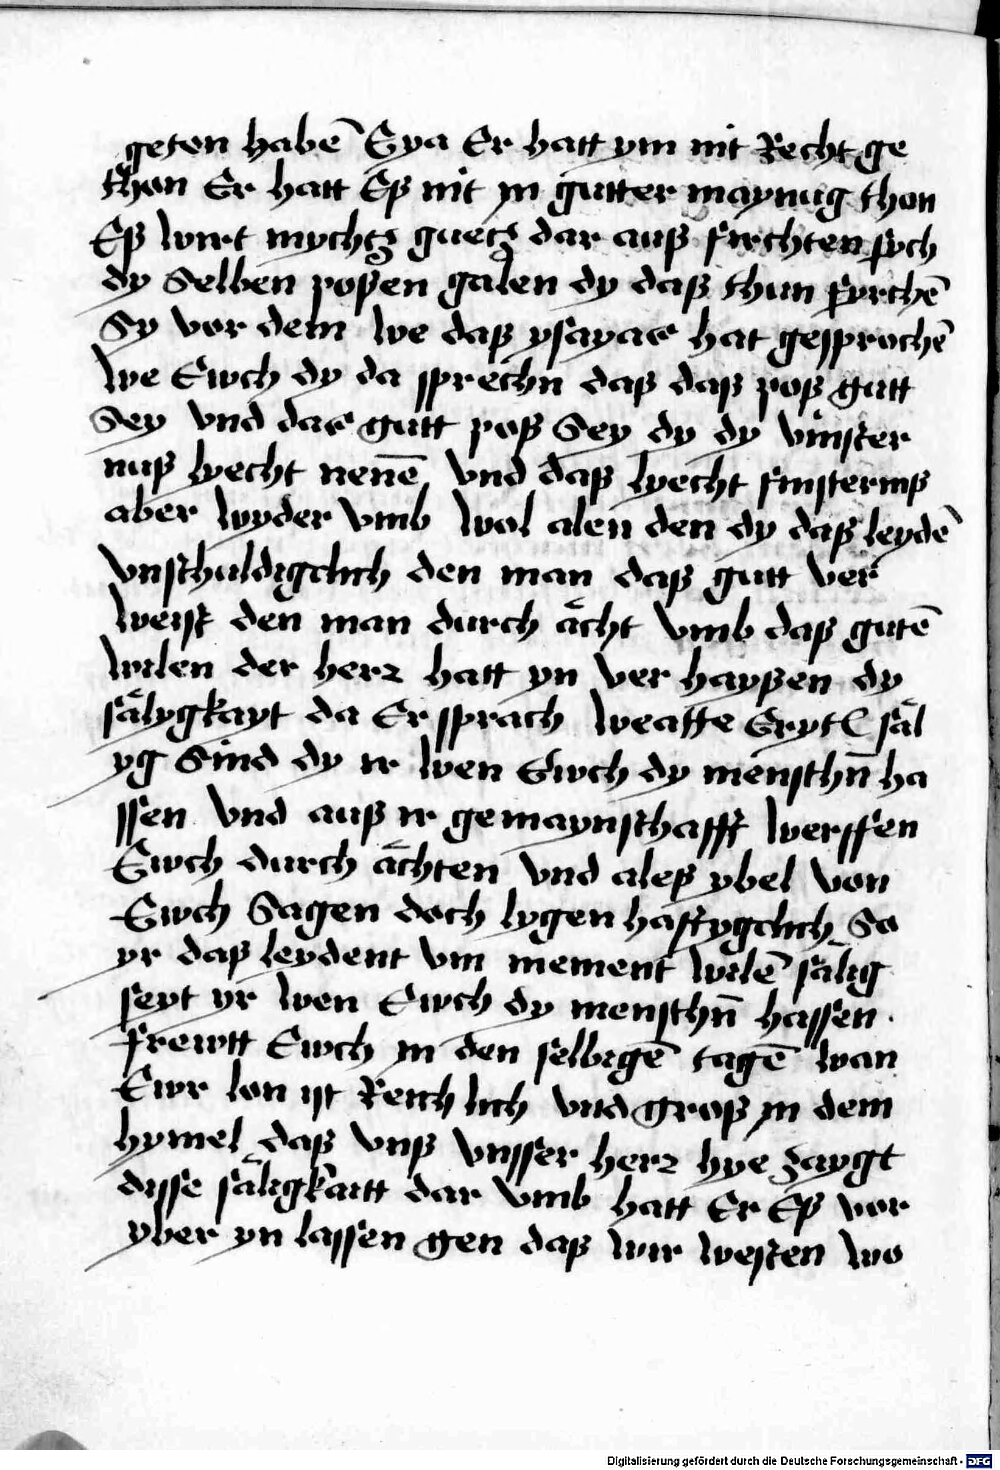 geton habē Eya Er hatt ym nit Recht ge
thon Er hatt Eß nit jn gutter maynug thon
Eß wirt nychtz guetz dar auß firchten sych
dy Selben posen galen dy daß thun fyrchē
Sy vor dem we daß ysayas hat gesprochē
We Ewch dy da sprechn daß daß poß gutt
Sey vnd das gutt poß Sey dy dy vinster
nuß lyecht nenē vnd daß lyecht finsternuß
aber wyder vmb wol alen den dy daß leydē
vnschuldigclich den man daß gutt ver
weist den man durch ächt vmb daß gutē
wilen der herr hatt yn ver hayßen dy
sälygkayt da Er sprach säl
yg Sind dy ir wen Ewch dy menschn̄ ha
ssen vnd auß ir gemaynschafft werffen
Ewch durch ächten vnd aleß ybel von
Ewch Sagen doch lygen haftygclich So
yr daß leydent vm mement wilē sälig
seyt yr wen Ewch dy menschn̄ hassen
frewtt Ewch jn den selbigē tagē wan
Ewr lon ist Reich lich vnd groß jn dem
hymel daß vnß vnsser herr hye zaygt
disse säligkaitt dar vmb hatt Er Eß vor
yber yn lassen gen daß wir westen wo
Digitalisierung gefördert durch die Deutsche Forschungsgemeinschaft - DFG